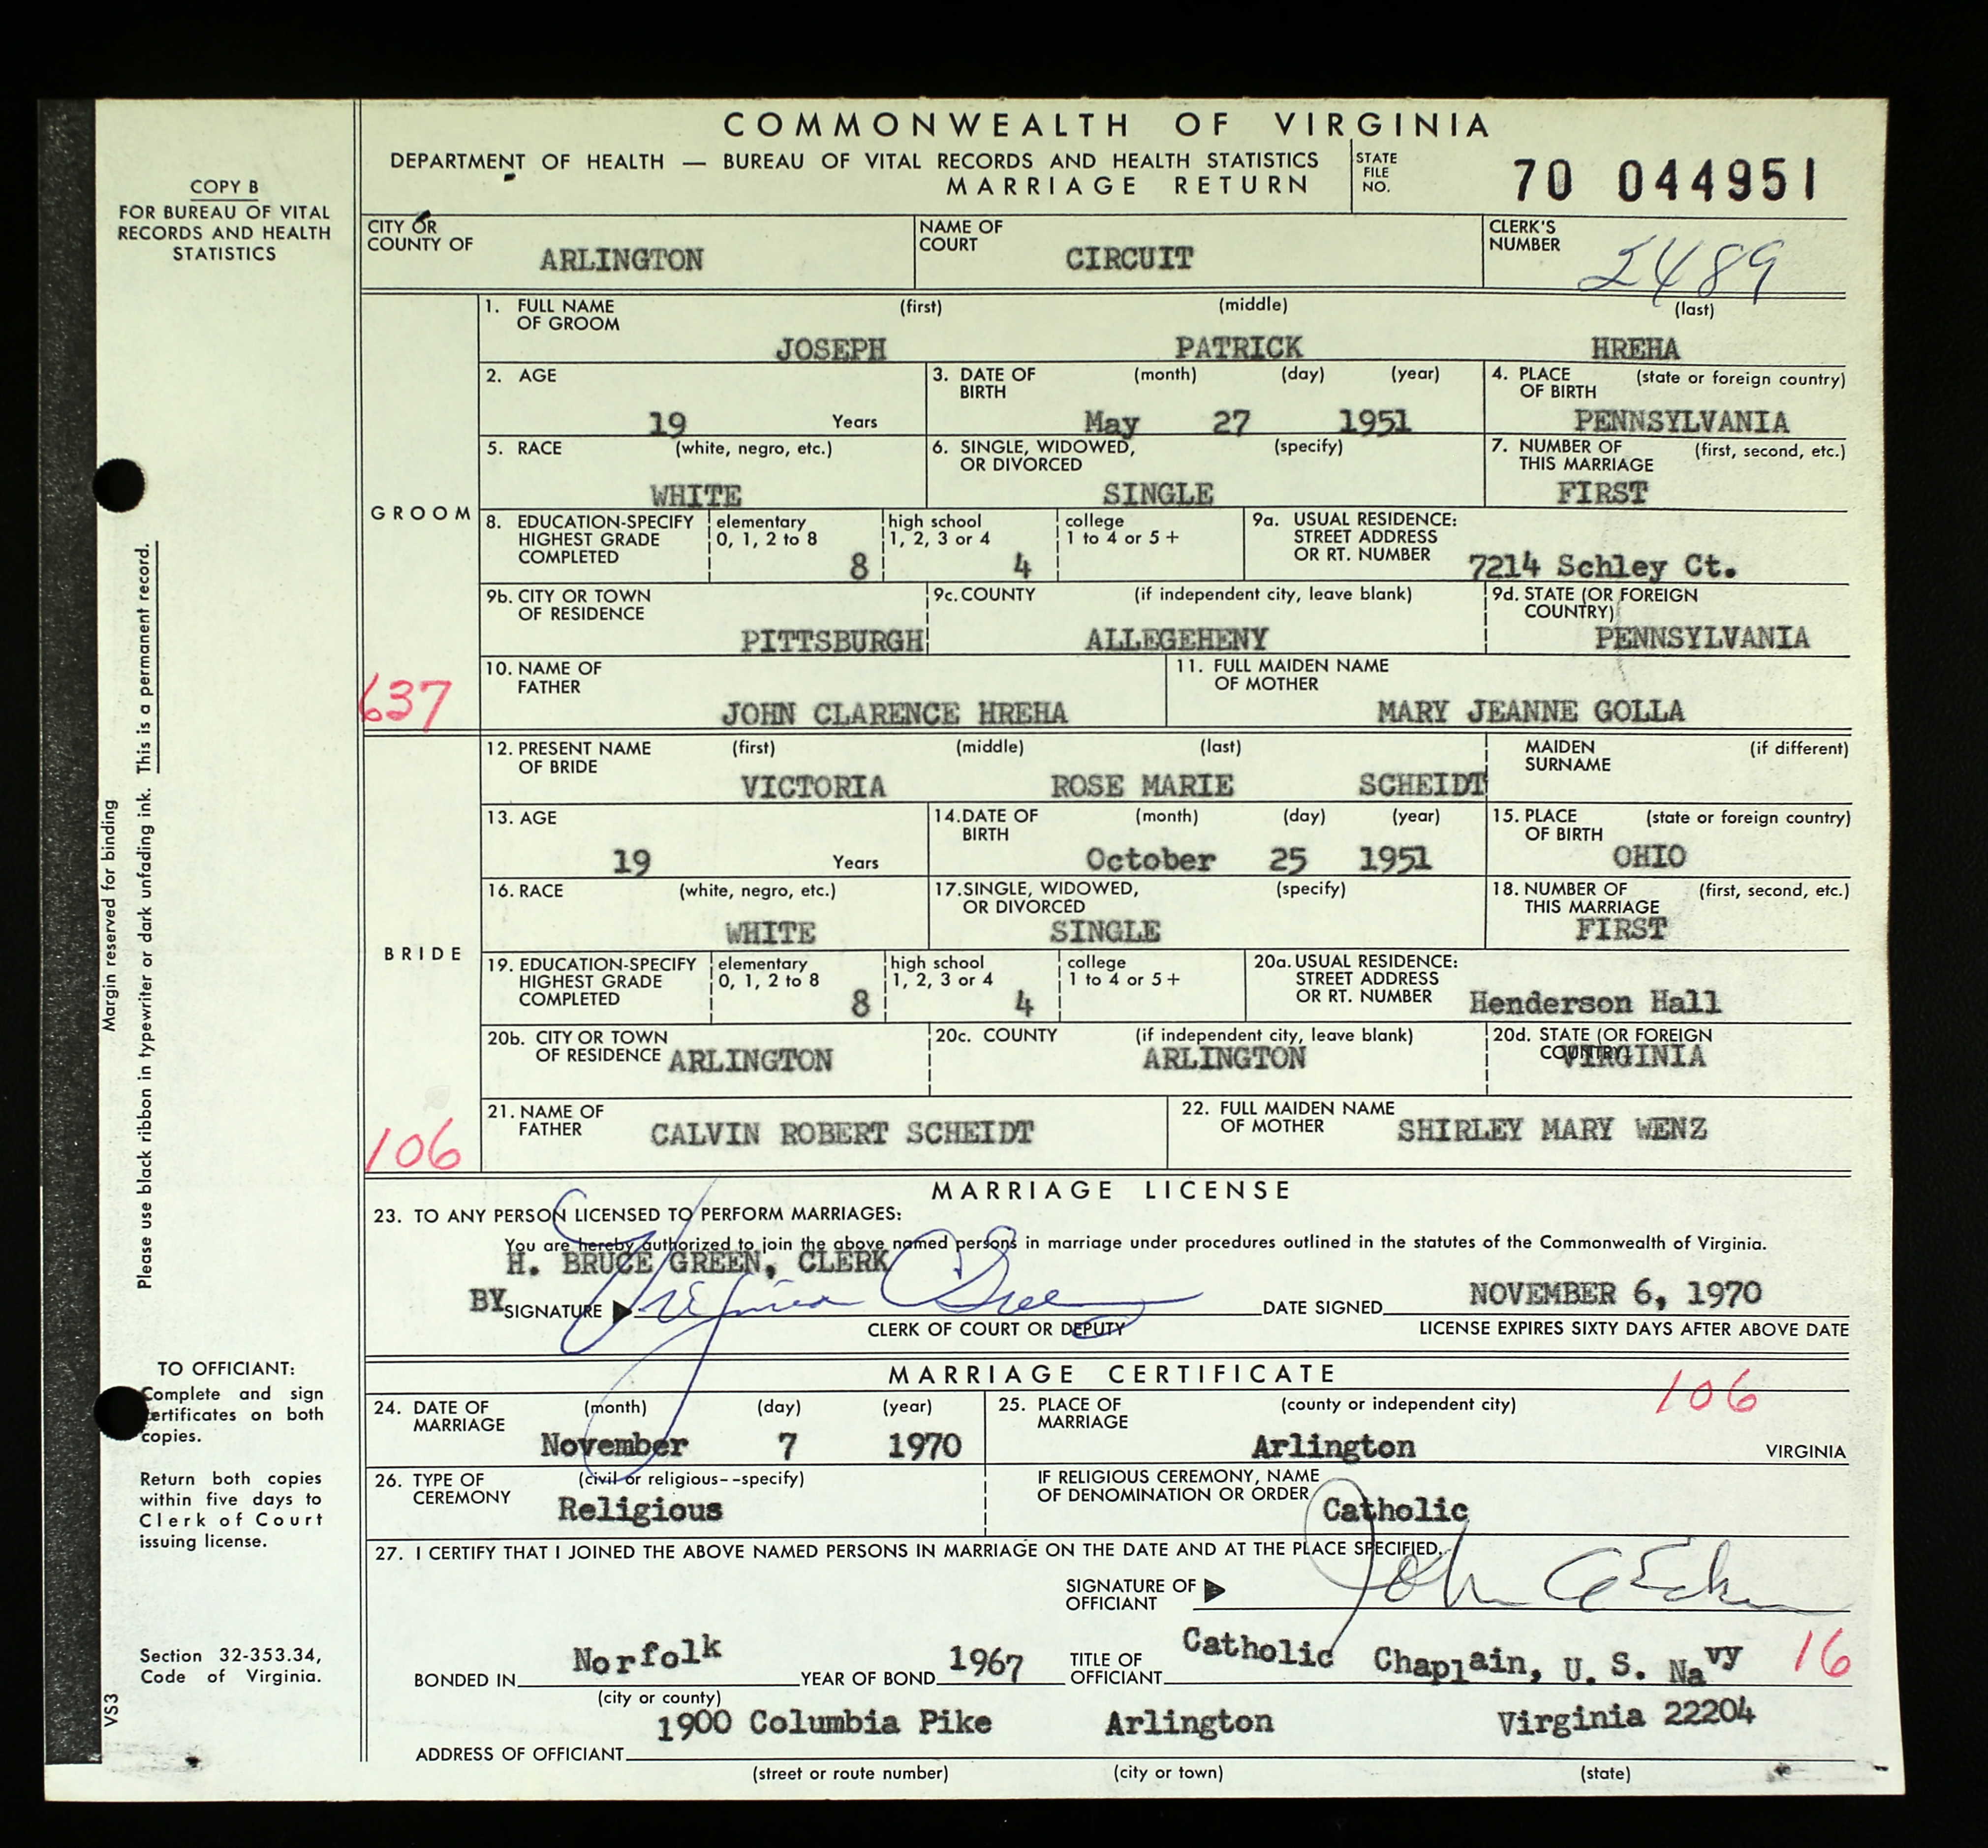 COMMONWEALTH OF VIRGINIA
DEPARTMENT OF HEALTH — BUREAU OF VITAL RECORDS AND HEALTH STATISTICS
MARRIAGE RETURN
STATE FILE NO. 70 044951
COPY B
FOR BUREAU OF VITAL
RECORDS AND HEALTH
STATISTICS
CITY OR COUNTY OF ARLINGTON NAME OF COURT CIRCUIT CLERK'S NUMBER 2489
GROOM
1. FULL NAME OF GROOM (first) (middle) (last)
JOSEPH PATRICK HREHA
2. AGE 19 Years 3. DATE OF BIRTH (month) (day) (year) May 27 1951 4. PLACE OF BIRTH (state or foreign country) PENNSYLVANIA
5. RACE (white, negro, etc.) WHITE 6. SINGLE, WIDOWED, OR DIVORCED (specify) SINGLE 7. NUMBER OF THIS MARRIAGE (first, second, etc.) FIRST
8. EDUCATION-SPECIFY HIGHEST GRADE COMPLETED elementary 0, 1, 2 to 8 8 high school 1, 2, 3 or 4 4 college 1 to 4 or 5+ 9a. USUAL RESIDENCE: STREET ADDRESS OR RT. NUMBER 7214 Schley Ct.
9b. CITY OR TOWN OF RESIDENCE PITTSBURGH 9c. COUNTY (if independent city, leave blank) ALLEGEHENY 9d. STATE (OR FOREIGN COUNTRY) PENNSYLVANIA
637
10. NAME OF FATHER JOHN CLARENCE HREHA 11. FULL MAIDEN NAME OF MOTHER MARY JEANNE GOLLA
BRIDE
12. PRESENT NAME OF BRIDE (first) (middle) (last) MAIDEN SURNAME (if different)
VICTORIA ROSE MARIE SCHEIDT
13. AGE 19 Years 14. DATE OF BIRTH (month) (day) (year) October 25 1951 15. PLACE OF BIRTH (state or foreign country) OHIO
16. RACE (white, negro, etc.) WHITE 17. SINGLE, WIDOWED, OR DIVORCED (specify) SINGLE 18. NUMBER OF THIS MARRIAGE (first, second, etc.) FIRST
19. EDUCATION-SPECIFY HIGHEST GRADE COMPLETED elementary 0, 1, 2 to 8 8 high school 1, 2, 3 or 4 4 college 1 to 4 or 5+ 20a. USUAL RESIDENCE: STREET ADDRESS OR RT. NUMBER Henderson Hall
20b. CITY OR TOWN OF RESIDENCE ARLINGTON 20c. COUNTY (if independent city, leave blank) ARLINGTON 20d. STATE (OR FOREIGN COUNTRY) VIRGINIA
106
21. NAME OF FATHER CALVIN ROBERT SCHEIDT 22. FULL MAIDEN NAME OF MOTHER SHIRLEY MARY WENZ
MARRIAGE LICENSE
23. TO ANY PERSON LICENSED TO PERFORM MARRIAGES:
You are hereby authorized to join the above named persons in marriage under procedures outlined in the statutes of the Commonwealth of Virginia.
H. BRUCE GREEN, CLERK
BY SIGNATURE Virginia DATE SIGNED NOVEMBER 6, 1970
CLERK OF COURT OR DEPUTY LICENSE EXPIRES SIXTY DAYS AFTER ABOVE DATE
MARRIAGE CERTIFICATE
106
24. DATE OF MARRIAGE (month) (day) (year) November 7 1970 25. PLACE OF MARRIAGE (county or independent city) Arlington VIRGINIA
26. TYPE OF CEREMONY (civil or religious--specify) Religious IF RELIGIOUS CEREMONY, NAME OF DENOMINATION OR ORDER Catholic
27. I CERTIFY THAT I JOINED THE ABOVE NAMED PERSONS IN MARRIAGE ON THE DATE AND AT THE PLACE SPECIFIED.
SIGNATURE OF OFFICIANT John
BONDED IN Norfolk YEAR OF BOND 1967 TITLE OF OFFICIANT Catholic Chaplain, U. S. Navy 16
(city or county)
1900 Columbia Pike Arlington Virginia 22204
ADDRESS OF OFFICIANT
(street or route number) (city or town) (state)
Margin reserved for binding
Please use black ribbon in typewriter or dark unfading ink. This is a permanent record.
TO OFFICIANT:
Complete and sign
certificates on both
copies.
Return both copies
within five days to
Clerk of Court
issuing license.
Section 32-353.34,
Code of Virginia.
VS3